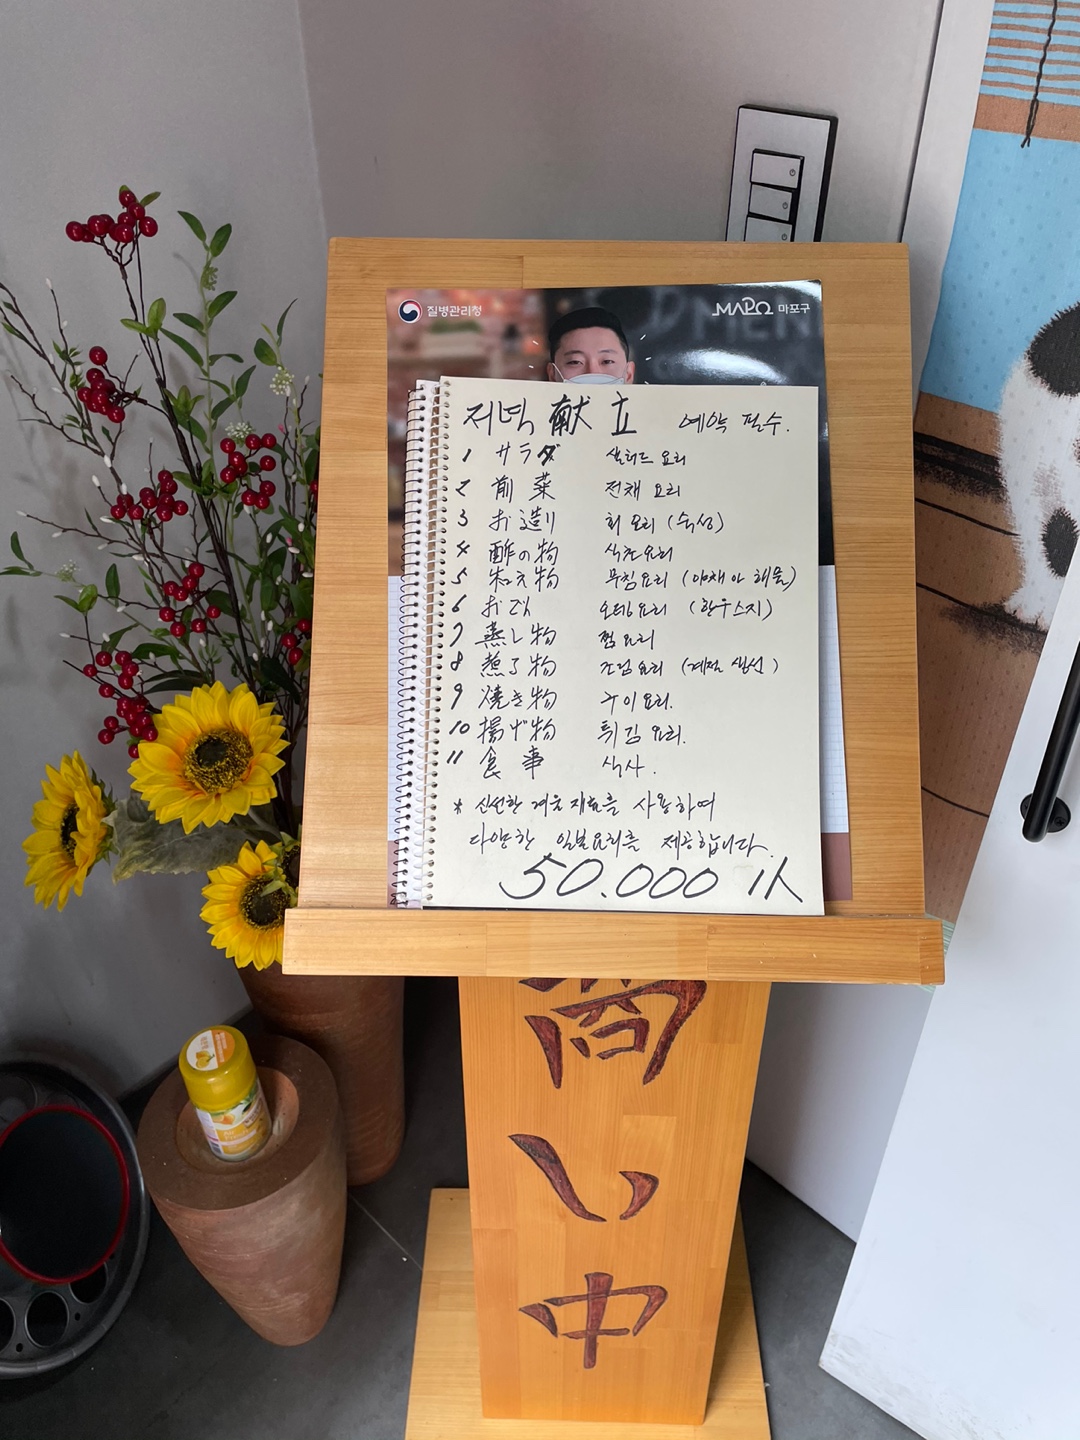 질병관리청
MAPO 마포구
저녁 献立 예약 필수.
1 サラダ 샐러드 요리
2 前菜 전채 요리
3 お造り 회 요리 (숙성)
4 酢の物 식초요리
5 和え物 무침요리 (야채 와 해물)
6 おでん 오뎅요리 (한우스지)
7 蒸し物 찜 요리
8 煮る物 조림요리 (계절 생선)
9 焼き物 구이 요리.
10 揚げ物 튀김 요리.
11 食事 식사.
* 신선한 겨울 재료를 사용하여
다양한 일본요리를 제공합니다.
50.000 1人
商
い
中